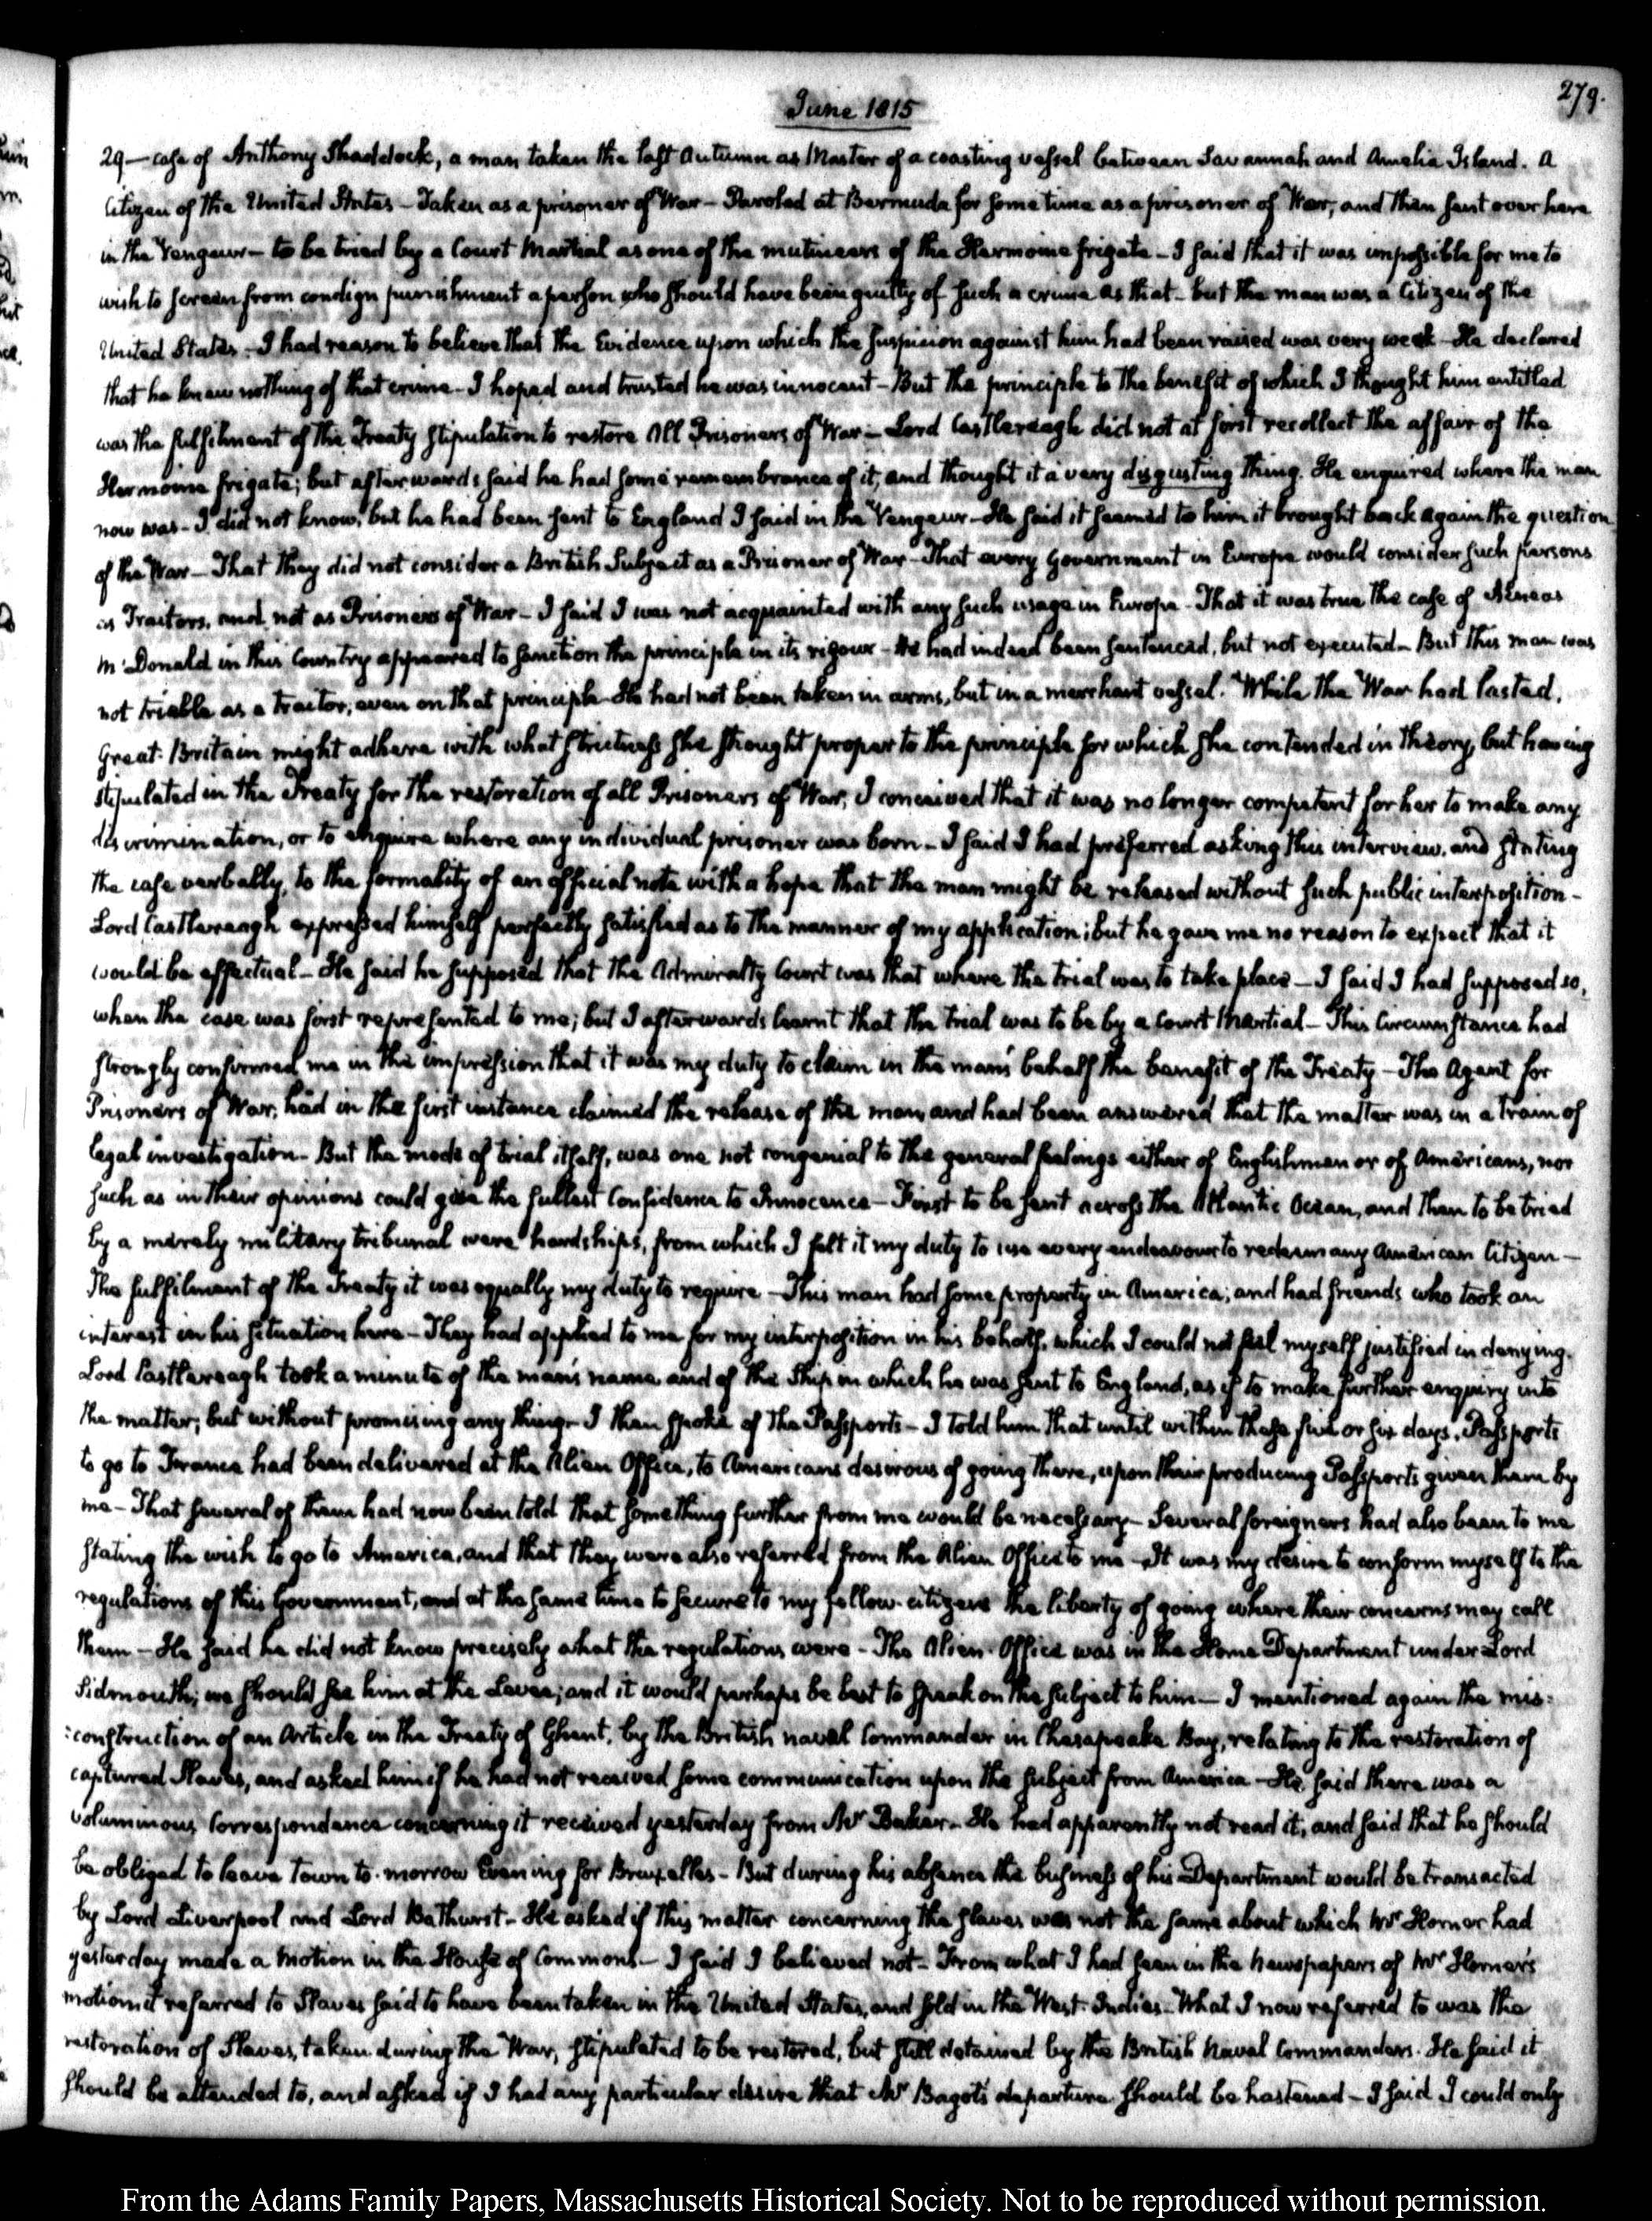 279.
June 1815
29 — case of Anthony Shaddock, a man taken the last Autumn as Master of a coasting vessel between Savannah and Amelia Island. A
Citizen of the United States — Taken as a prisoner of War — Paroled at Bermuda for some time as a prisoner of War, and then sent over here
in the Vengeur — to be tried by a Court Martial as one of the mutineers of the Hermoine frigate — I said that it was impossible for me to
wish to screen from condign punishment a person who should have been guilty of such a crime as that — but the man was a Citizen of the
United States — I had reason to believe that the Evidence upon which the suspicion against him had been raised was very weak — He declared
that he knew nothing of that crime — I hoped and trusted he was innocent — But the principle to the benefit of which I thought him entitled
was the fulfilment of the Treaty stipulation to restore All Prisoners of War — Lord Castlereagh did not at first recollect the affair of the
Hermoine frigate; but afterwards said he had some remembrance of it, and thought it a very disgusting thing. He enquired where the man
now was — I did not know, but he had been sent to England I said in the Vengeur — He said it seemed to him it brought back again the question
of the War — That they did not consider a British Subject as a Prisoner of War — That every Government in Europe would consider such persons
as Traitors, and not as Prisoners of War — I said I was not acquainted with any such usage in Europe — That it was true the case of Æneas
McDonald in this Country appeared to sanction the principle in its rigour — He had indeed been sentenced, but not executed — But this man was
not triable as a traitor, even on that principle — He had not been taken in arms, but in a merchant vessel. While the War had lasted,
Great-Britain might adhere with what strictness she thought proper to the principle for which she contended in theory, but having
stipulated in the Treaty for the restoration of all Prisoners of War, I conceived that it was no longer competent for her to make any
discrimination, or to enquire where any individual prisoner was born — I said I had preferred asking this interview, and stating
the case verbally, to the formality of an official note with a hope that the man might be released without such public interposition —
Lord Castlereagh expressed himself perfectly satisfied as to the manner of my application; but he gave me no reason to expect that it
would be effectual — He said he supposed that the Admiralty Court was that where the trial was to take place — I said I had supposed so,
when the case was first represented to me; but I afterwards learnt that the trial was to be by a Court Martial — This Circumstance had
strongly confirmed me in the impression that it was my duty to claim in the man's behalf the benefit of the Treaty — The Agent for
Prisoners of War, had in the first instance claimed the release of the man, and had been answered that the matter was in a train of
legal investigation — But the mode of trial itself, was one not congenial to the general feelings either of Englishmen or of Americans, nor
such as in their opinions could give the fullest Confidence to Innocence — First to be sent across the Atlantic Ocean, and then to be tried
by a merely military tribunal were hardships, from which I felt it my duty to use every endeavour to redeem any American Citizen —
The fulfilment of the Treaty it was equally my duty to require — This man had some property in America, and had friends who took an
interest in his situation here — They had applied to me for my interposition in his behalf, which I could not feel myself justified in denying.
Lord Castlereagh took a minute of the man's name, and of the Ship in which he was sent to England, as if to make further enquiry into
the matter; but without promising any thing — I then spoke of the Passports — I told him that until within these five or six days, Passports
to go to France had been delivered at the Alien Office, to Americans desirous of going there, upon their producing Passports given them by
me — That several of them had now been told that something further from me would be necessary — Several foreigners had also been to me
stating the wish to go to America, and that they were also referred from the Alien Office to me — It was my desire to conform myself to the
regulations of this Government, and at the same time to secure to my fellow-citizens the liberty of going where their concerns may call
them — He said he did not know precisely what the regulations were — The Alien-Office was in the Home Department under Lord
Sidmouth; we should see him at the Levee; and it would perhaps be best to speak on the subject to him — I mentioned again the mis:
:construction of an Article in the Treaty of Ghent, by the British naval Commander in Chesapeake Bay, relating to the restoration of
captured Slaves, and asked him if he had not received some communication upon the subject from America — He said there was a
voluminous Correspondence concerning it received yesterday from Mr Baker — He had apparently not read it, and said that he should
be obliged to leave town to-morrow Evening for Bruxelles — But during his absence the business of his Department would be transacted
by Lord Liverpool and Lord Bathurst — He asked if this matter concerning the slaves was not the same about which Mr Horner had
yesterday made a Motion in the House of Commons — I said I believed not — From what I had seen in the Newspapers of Mr Horner's
motion it referred to Slaves said to have been taken in the United States, and sold in the West-Indies — What I now referred to was the
restoration of Slaves, taken during the War, stipulated to be restored, but still detained by the British Naval Commanders. He said it
should be attended to, and asked if I had any particular desire that Mr Bagot's departure should be hastened — I said I could only
From the Adams Family Papers, Massachusetts Historical Society. Not to be reproduced without permission.